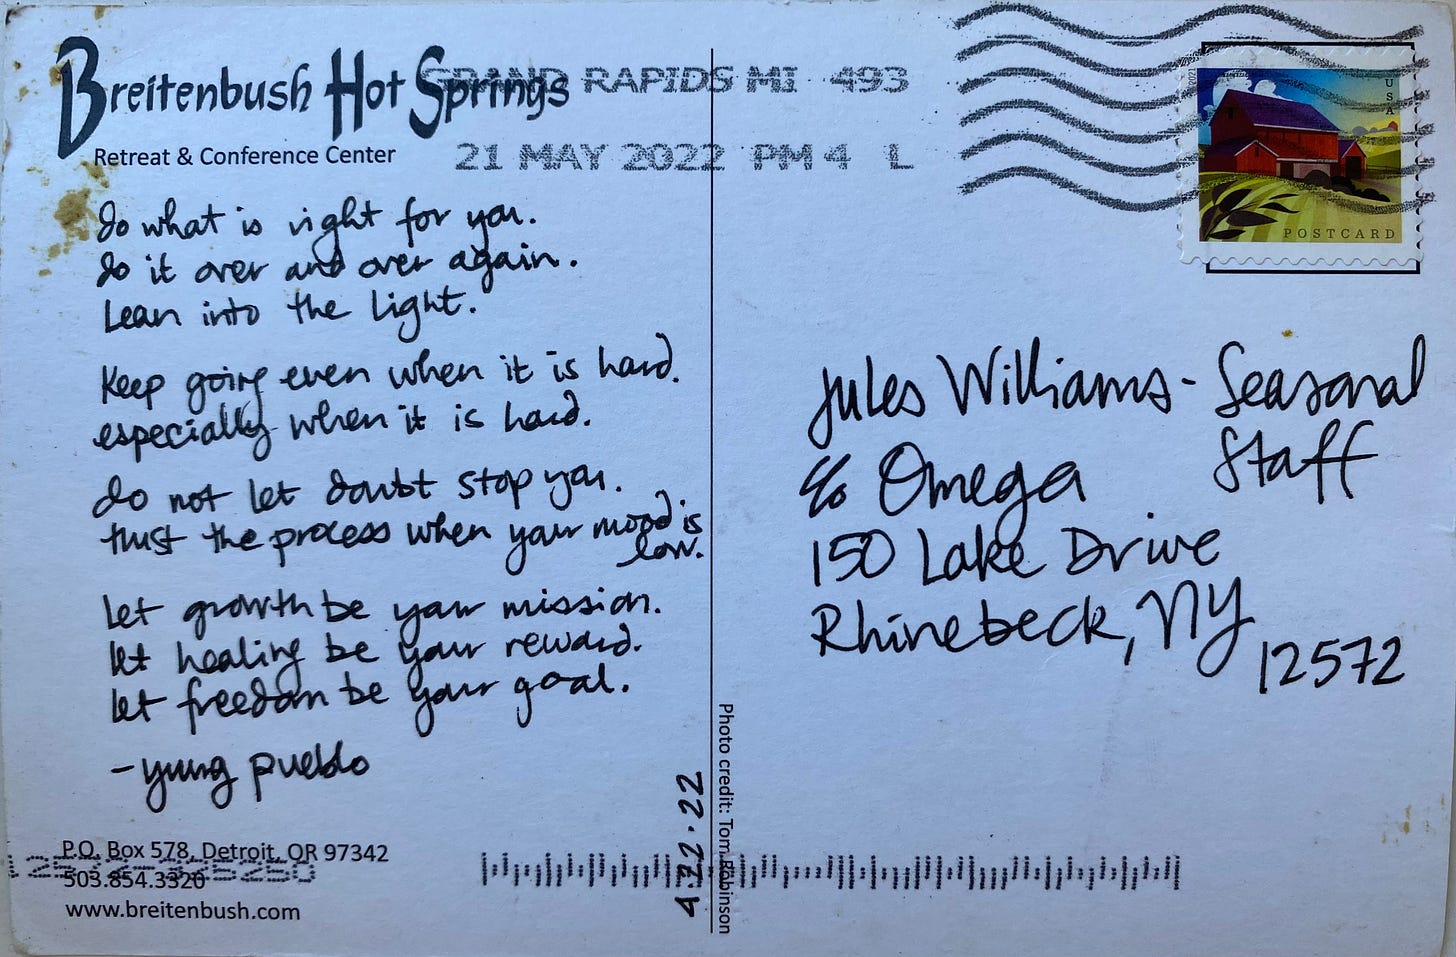 Breitenbush Hot Springs
Retreat & Conference Center
GRAND RAPIDS MI 493
21 MAY 2022 PM 4 L
USA
2021
POSTCARD
do what is right for you.
do it over and over again.
Lean into the light.
Keep going even when it is hard.
especially when it is hard.
do not let doubt stop you.
trust the process when your mood is
low.
let growth be your mission.
let healing be your reward.
let freedom be your goal.
- yung pueblo
Jules Williams - Seasonal
Staff
c/o Omega
150 Lake Drive
Rhinebeck, NY
12572
4.22.22
Photo credit: Tom Robinson
P.O. Box 578, Detroit, OR 97342
503.854.3320
www.breitenbush.com